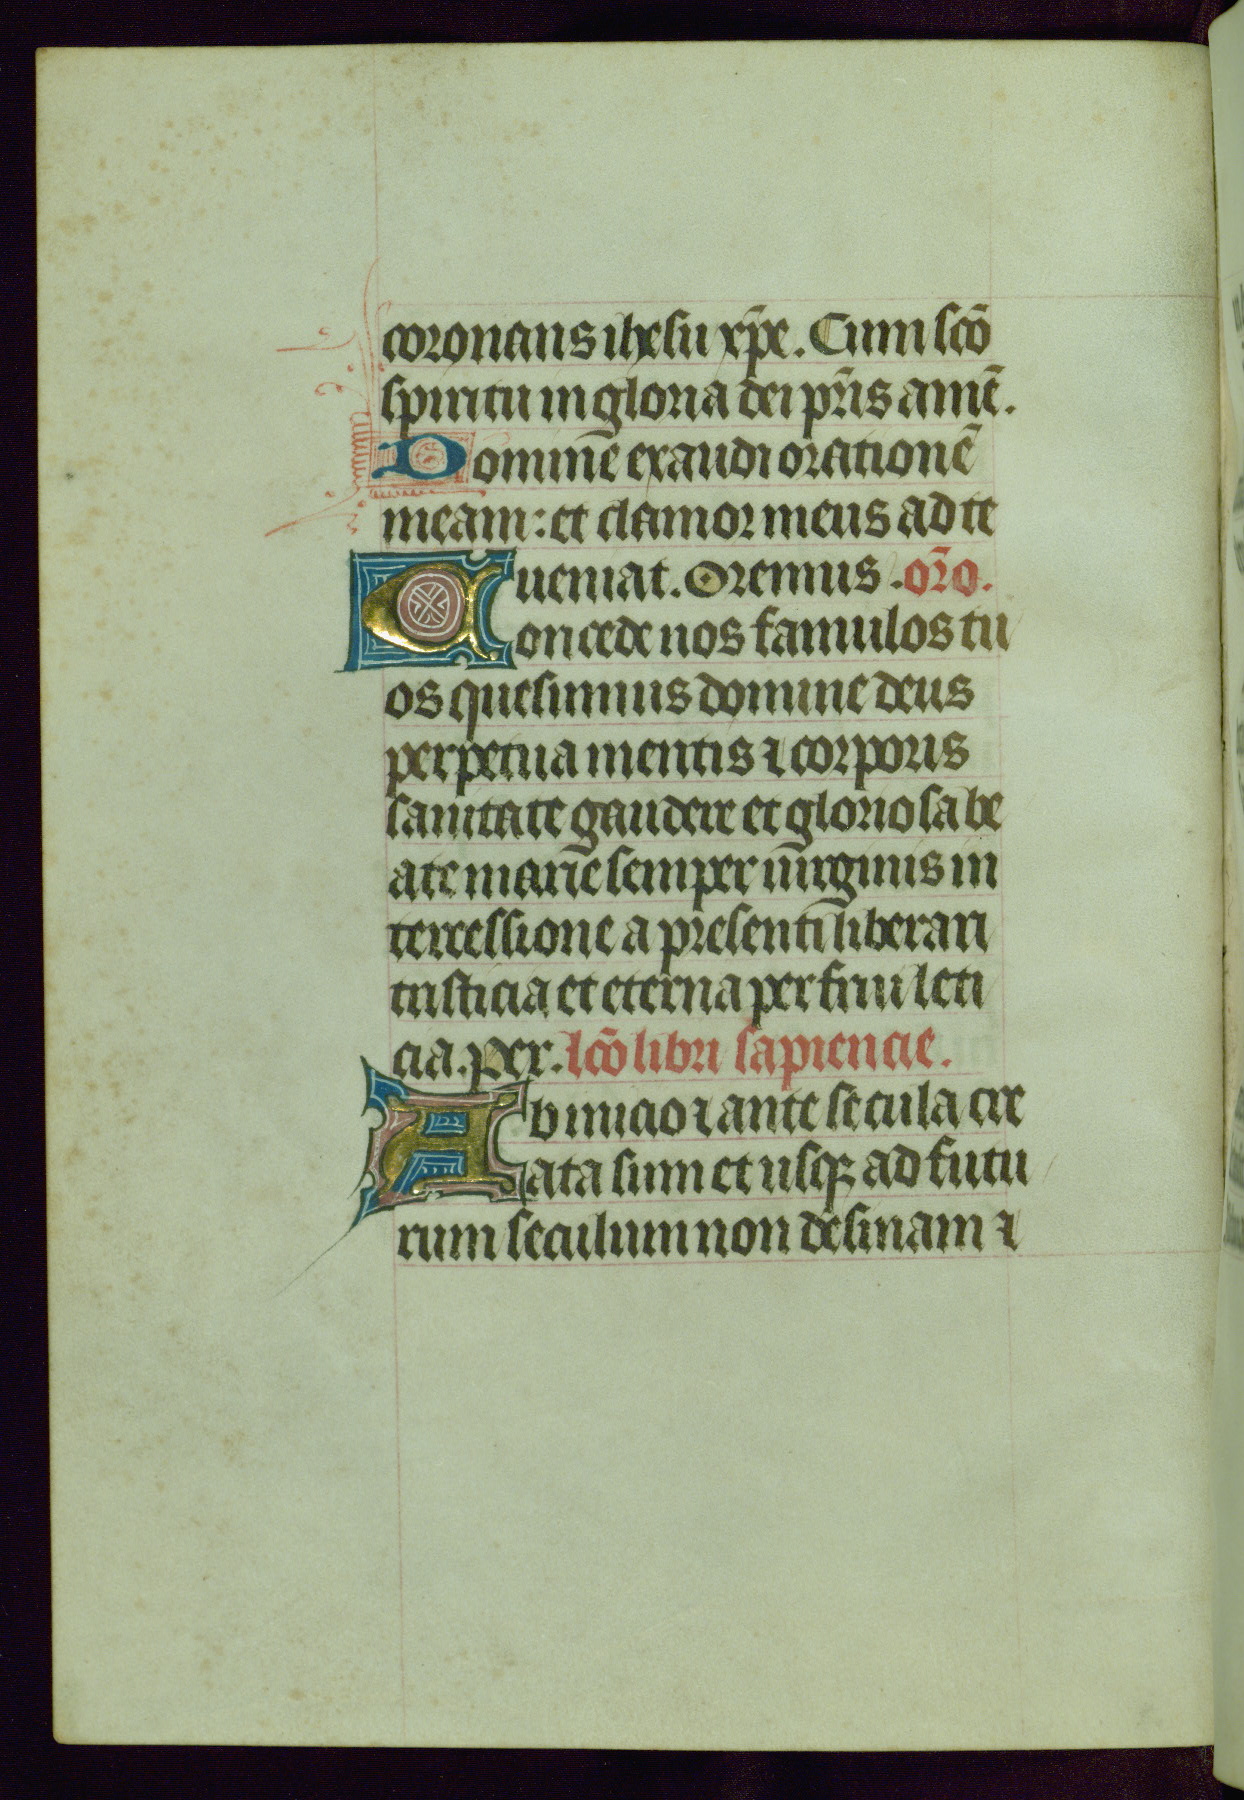 coronans ihesu xp̄e. Cum sc̄o
spiritu in gloria dei pr̄is amē.
Domine exaudi orationē
meam: et clamor meus ad te
ueniat. Oremus. or̄o.
Concede nos famulos tu
os quesumus domine deus
perpetua mentis ⁊ corporis
sanitate gaudere et gloriosa be
ate marie semper uirginis in
tercessione a presenti liberari
tristicia et eterna perfrui leti
cia. per. lc̄o libri sapiencie.
Ab inicio ⁊ ante secula cre
ata sum et usqꝫ ad futu
rum seculum non desinam ⁊